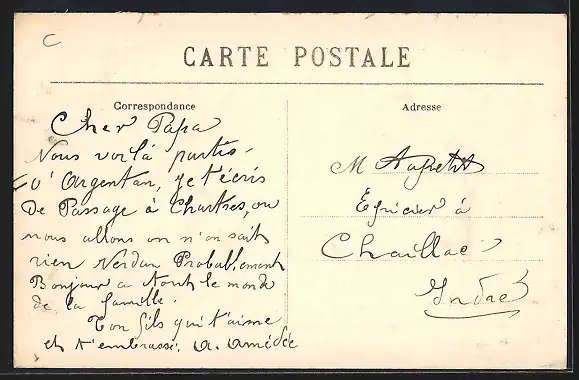 C
CARTE POSTALE
Correspondance
Cher Papa
Nous voilà partis
d'Argentan, je t'écris
De Passage à Chartres, ou
nous allons on n'en sait
rien Verdun Probablement
Bonjour a tout le monde
de la famille.
Ton fils qui t'aime
et t'embrasse. A. Amédée
Adresse
M Aupetit
Epicier à
Chaillac
Indre